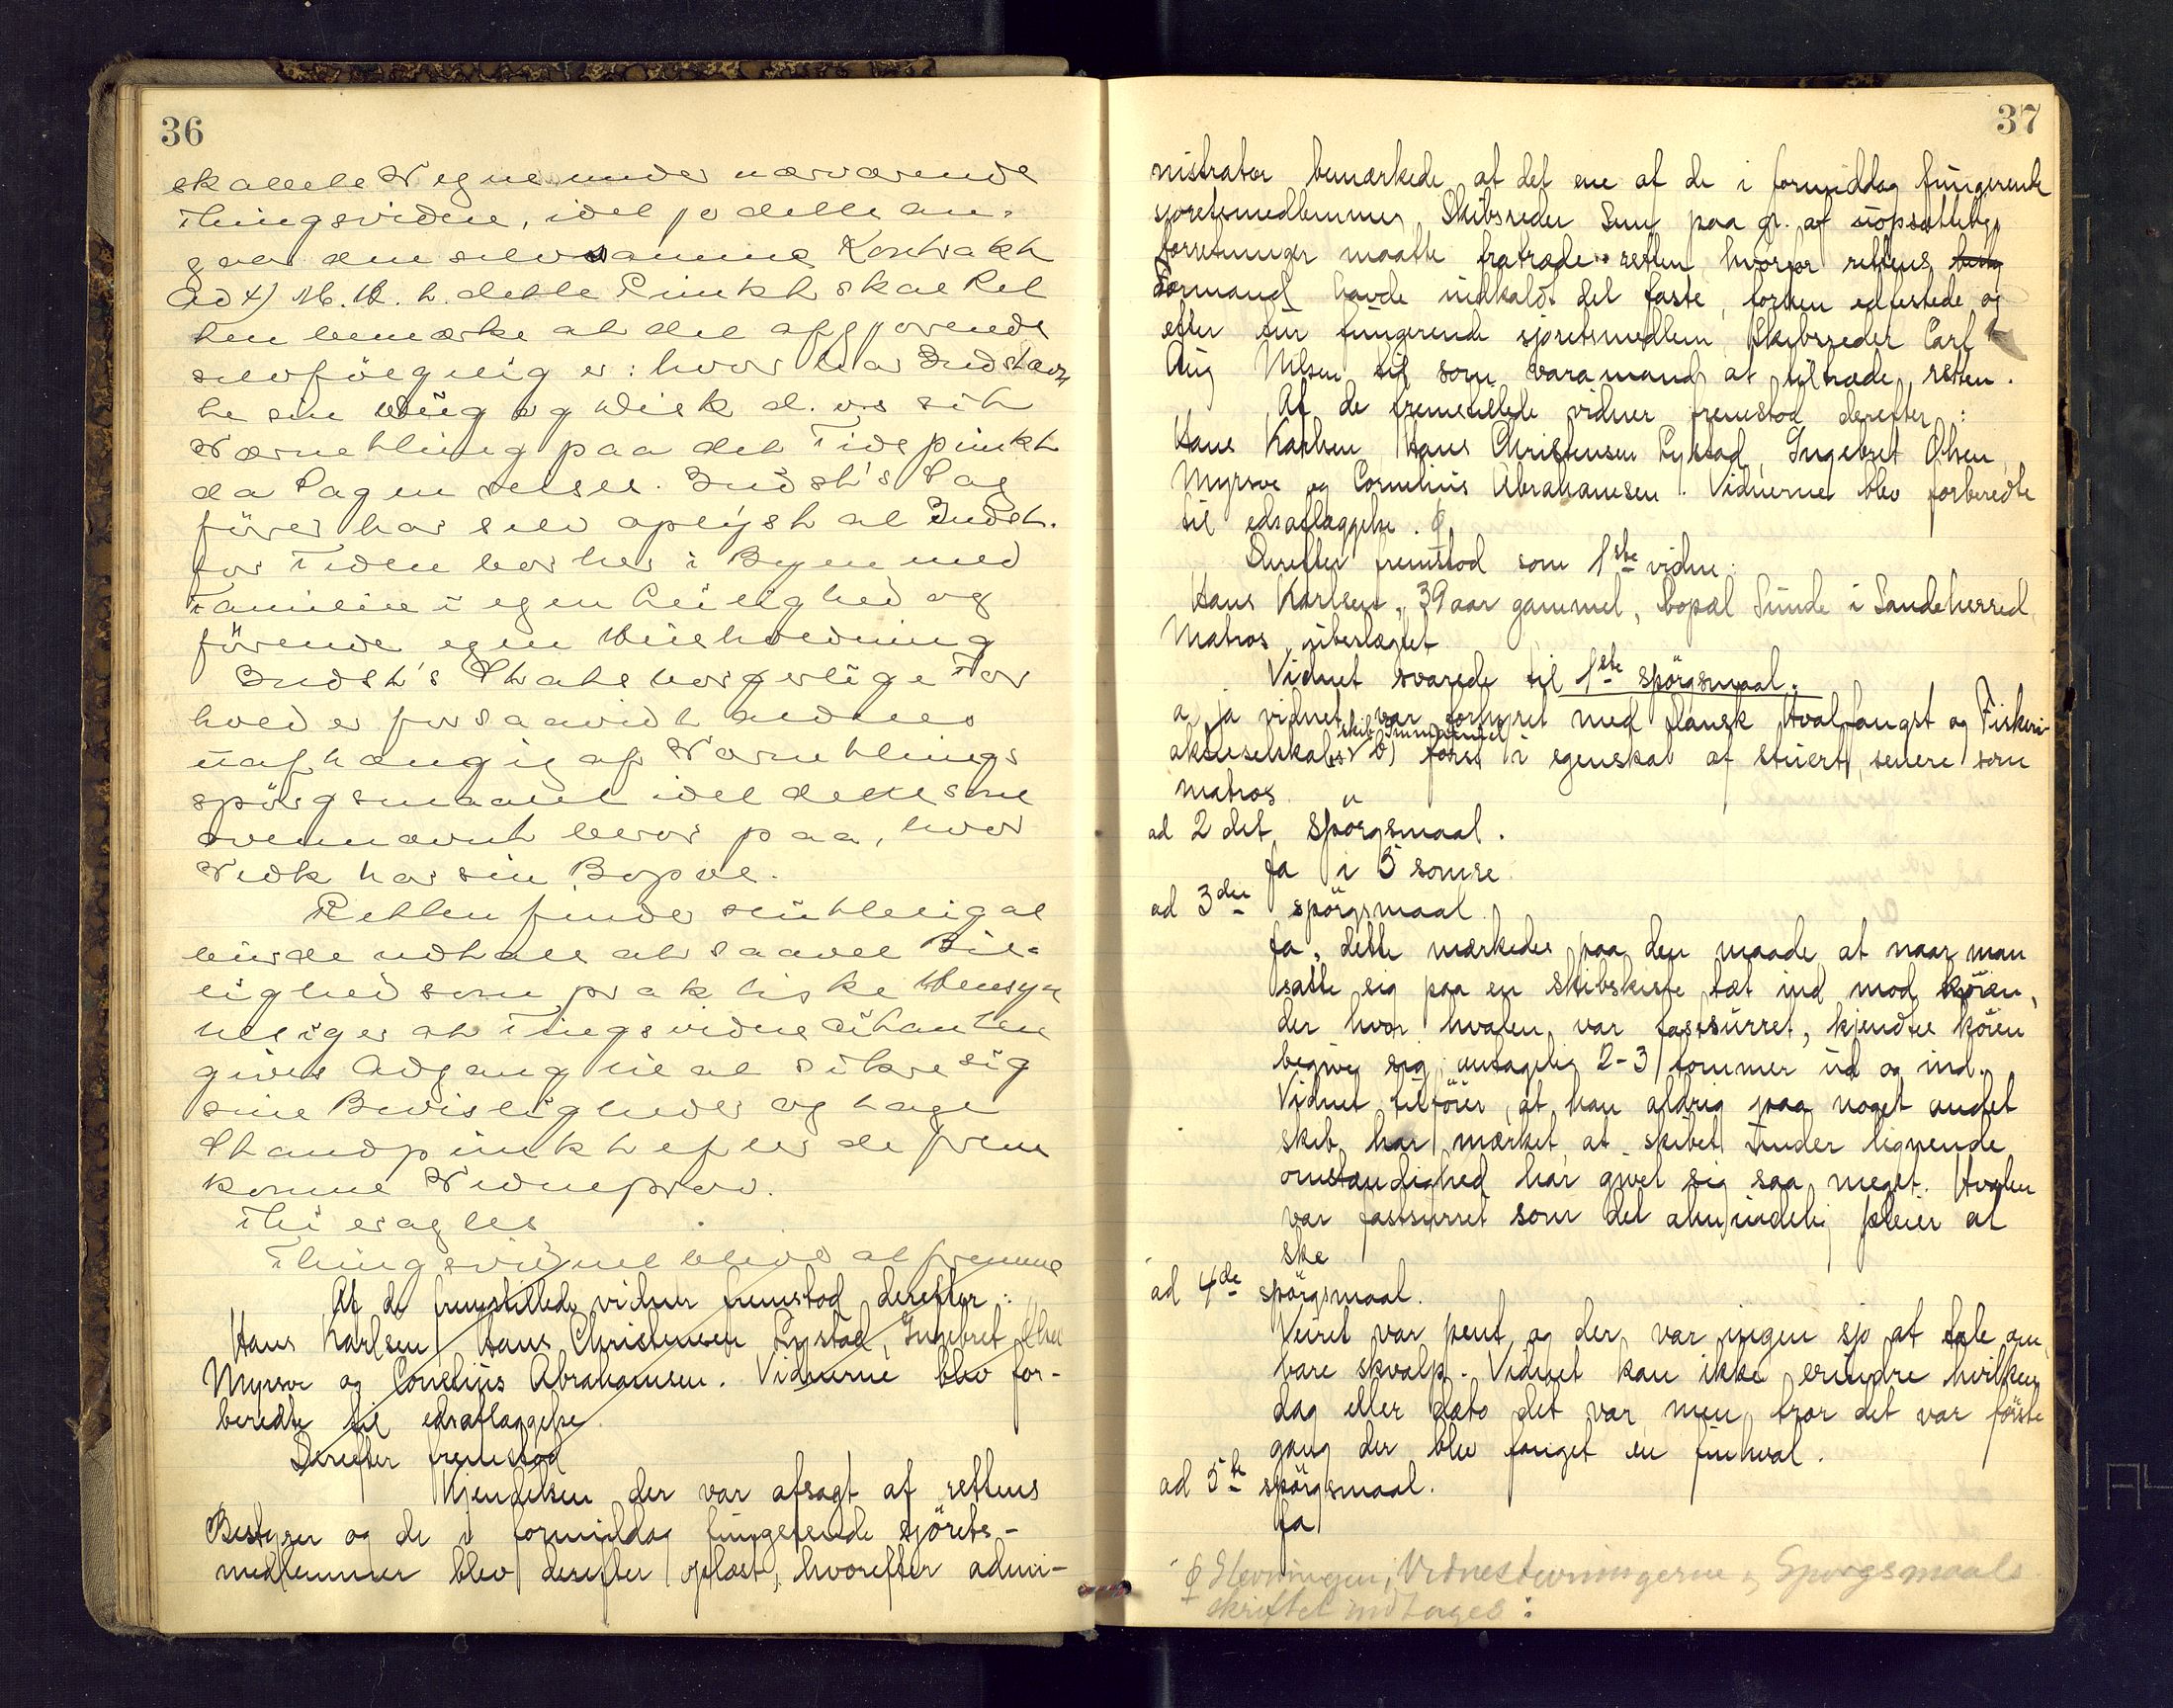 36
skallets Vegne under nærværende
Thingsvidne, idet jo dette an-
gaar den selvsamme Kontrakt
Ad 4) M. H. t. dette Punkt skal Ret
ten bemærke at det afgjørende
selvfölgelig er: hvor har Indstævn
te sin Hüg og Disk d. v. s sit
Værnethling paa det Tidspunkt
da Sagen reises. Indst's Sag
förer har selv oplyst at Indst.
for Tiden bor her i Byen med
Familie i egen Leilighed og
förende egen Huusholdning
Indst's Statsborgerlige For
hold er forsaavidt aldeles
uafhængig af Værnethings
spörgsmaalet idet dette som
ovennævnt beror paa, hvor
Vedk har sin Bopæl.
Retten finder sluttelig at
burde udtale at saavel Bil-
lighed som praktiske Hensyn
tilsiger at Tingsvidne Citanten
gives Adgang til at sikre sig
sine Bevisligheder og tage
Standpunkt efter de frem
komne Vidneprov.
Thi eragtes
Thingsvidnet blive at fremme
Af de fremstillede vidner fremstod derefter:
Hans Karlsen, Hans Christensen Lystad, Ingebret Olsen
Myrsve og Cornelius Abrahamsen. Vidnerne blev for-
beredte til edsaflæggelse.
Derefter fremstod
Kjendelsen der var afsagt af rettens
Bestyrer og de i formiddag fungerende sjörets-
medlemmer blev derefter oplæst, hvorefter admi-
37
nistrator bemærkede at det ene af de i formiddag fungerende
sjoretsmedlemmer, Skibsreder paa gr. af uopsættelige
forretninger maatte fratræde retten, hvorfor rettens
Formand havde indkaldt det faste, forhen edfæstede og
efter tur fungerende sjoretsmedlem Skibsreder Carl
Aug Nilsen til som varamand at tiltræde retten.
Af de fremstillede vidner fremstod derefter:
Hans Karlsen, Hans Christensen Lystad, Ingebret Olsen
Myrsve og Cornelius Abrahamsen. Vidnerne blev forberedte
til edsaflæggelse.
Derefter fremstod som 1ste vidne:
Hans Karlsen, 39 aar gammel, bopæl Sunde i Sandeherred
Matros, ubeslægtet
Vidnet svarede til 1ste spörgsmaal.
a, ja vidnet var forhyret med Dansk Hvalfangst og Fiskeri-
aktieselskabs skib b) först i egenskab af stuert, senere som
matros
ad 2det spörgsmaal.
Ja i 5 somre
ad 3die spörgsmaal
Ja, dette mærkedes paa den maade at naar man
satte sig paa en skibskiste tæt ind mod köien,
der hvor hvalen var fastsurret, kjendtes köien
begive sig antagelig 2-3 tommer ud og ind.
Vidnet tilföier, at han aldrig paa noget andet
skib har mærket at skibet under lignende
omstændighed har givet sig saa meget. Hvalen
var fastsurret som det almindelig pleier at
ske
ad 4de spörgsmaal.
Veiret var pent og der var ingen sjo at tale om,
bare skvalp. Vidnet kan ikke erindre hvilken
dag eller dato det var men tror det var förste
gang der blev fanget en finhval.
ad 5te spörgsmaal.
Ja
Stevningen, Vidnestevningerne og Sporgsmaals
skriftet indtages: